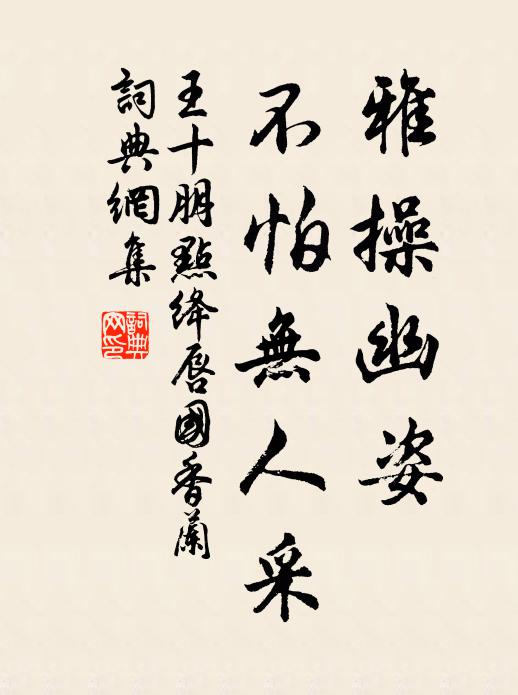 雅操幽姿
不怕無人采
王十朋點絳唇國香蘭
詞典網集
詞典網印